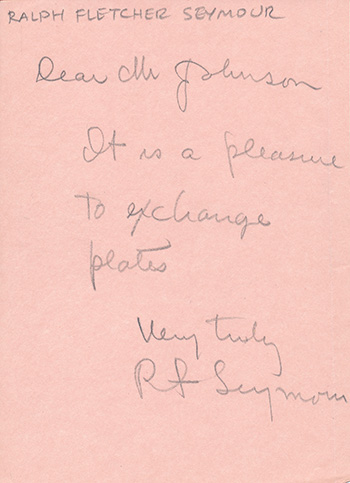 RALPH FLETCHER SEYMOUR
Dear Mr Johnson
It is a pleasure
to exchange
plates
Very truly
R F Seymour